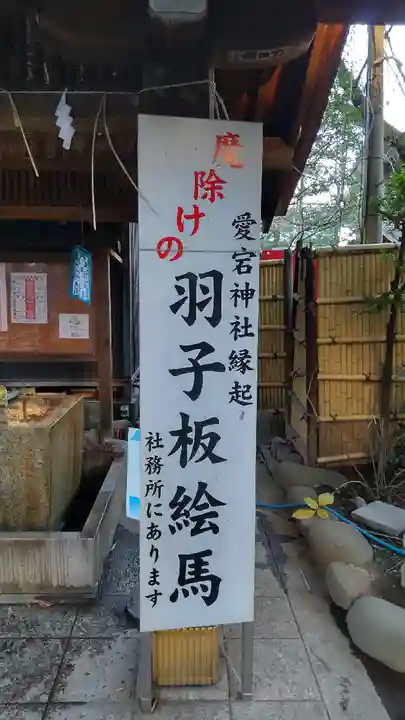 愛宕神社縁起
魔除けの
羽子板絵馬
社務所にあります